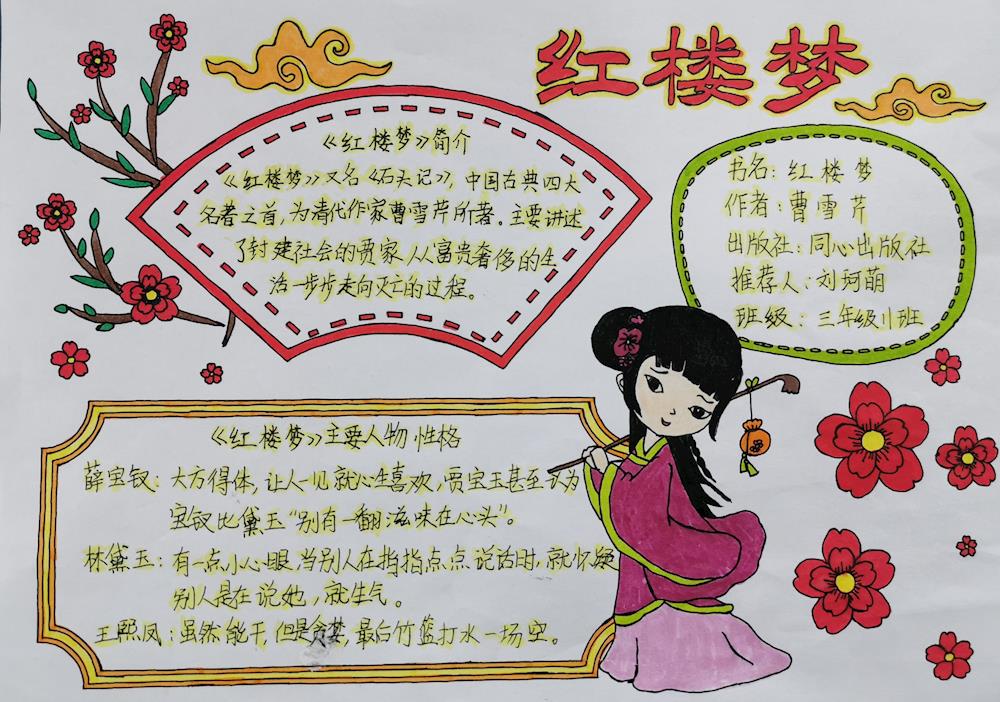 红楼梦
《红楼梦》简介
《红楼梦》又名《石头记》，中国古典四大
名著之首，为清代作家曹雪芹所著。主要讲述
了封建社会的贾家人从富贵奢侈的生
活一步步走向灭亡的过程。
书名：红楼梦
作者：曹雪芹
出版社：同心出版社
推荐人：刘珂萌
班级：三年级11班
《红楼梦》主要人物性格
薛宝钗：大方得体，让人一见就心生喜欢，贾宝玉甚至认为
宝钗比黛玉“别有一翻滋味在心头”。
林黛玉：有一点小心眼，当别人在指指点点说话时，就怀疑
别人是在说她，就生气。
王熙凤：虽然能干，但是贪婪，最后竹篮打水一场空。